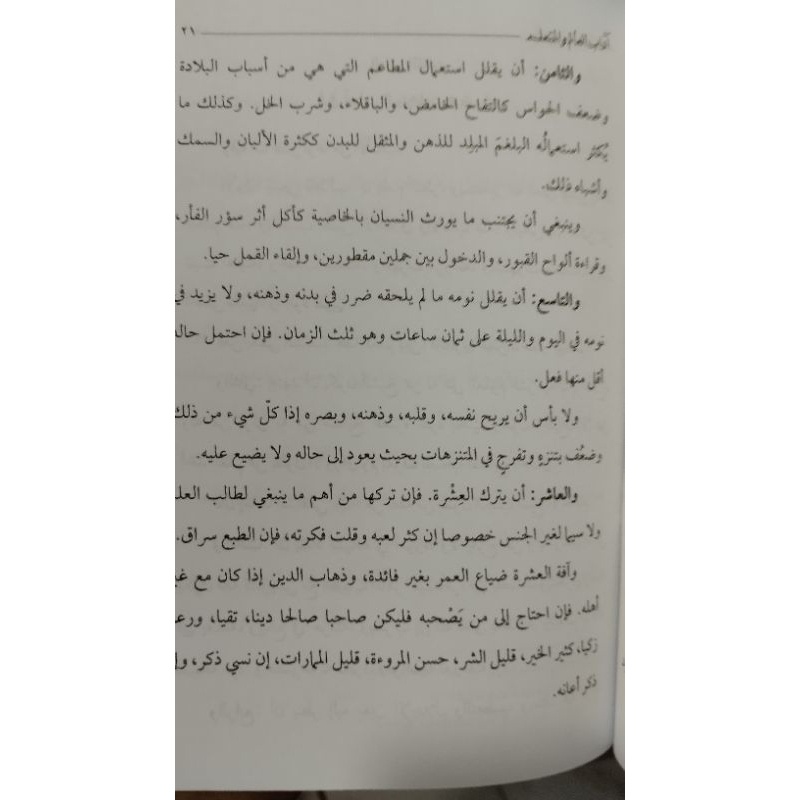 آداب العالم والمتعلم ٢١
والثامن: أن يقلل استعمال المطاعم التي هي من أسباب البلادة
وضعف الحواس كالتفاح الحامض، والباقلاء، وشرب الخل. وكذلك ما
يُكثر استعمالُه البلغمَ المبلِد للذهن والمثقل للبدن ككثرة الألبان والسمك
وأشباه ذلك.
وينبغي أن يجتنب ما يورث النسيان بالخاصية كأكل أثر سؤر الفأر،
وقراءة ألواح القبور، والدخول بين جملين مقطورين، وإلقاء القمل حيا.
والتاسع: أن يقلل نومه ما لم يلحقه ضرر في بدنه وذهنه، ولا يزيد في
نومه في اليوم والليلة على ثمان ساعات وهو ثلث الزمان. فإن احتمل حاله
أقل منها فعل.
ولا بأس أن يريح نفسه، وقلبه، وذهنه، وبصره إذا كلّ شيء من ذلك
وضعُف بتنزهٍ وتفرجٍ في المتنزهات بحيث يعود إلى حاله ولا يضيع عليه.
والعاشر: أن يترك العِشْرة. فإن تركها من أهم ما ينبغي لطالب العلم
ولا سيما لغير الجنس خصوصا إن كثر لعبه وقلت فكرته، فإن الطبع سراق.
وآفة العشرة ضياع العمر بغير فائدة، وذهاب الدين إذا كان مع غير
أهله. فإن احتاج إلى من يَصْحبه فليكن صاحبا صالحا دينا، تقيا، ورعا
زكيا، كثير الخير، قليل الشر، حسن المروءة، قليل الممارات، إن نسي ذكر، وإن
ذكر أعانه.